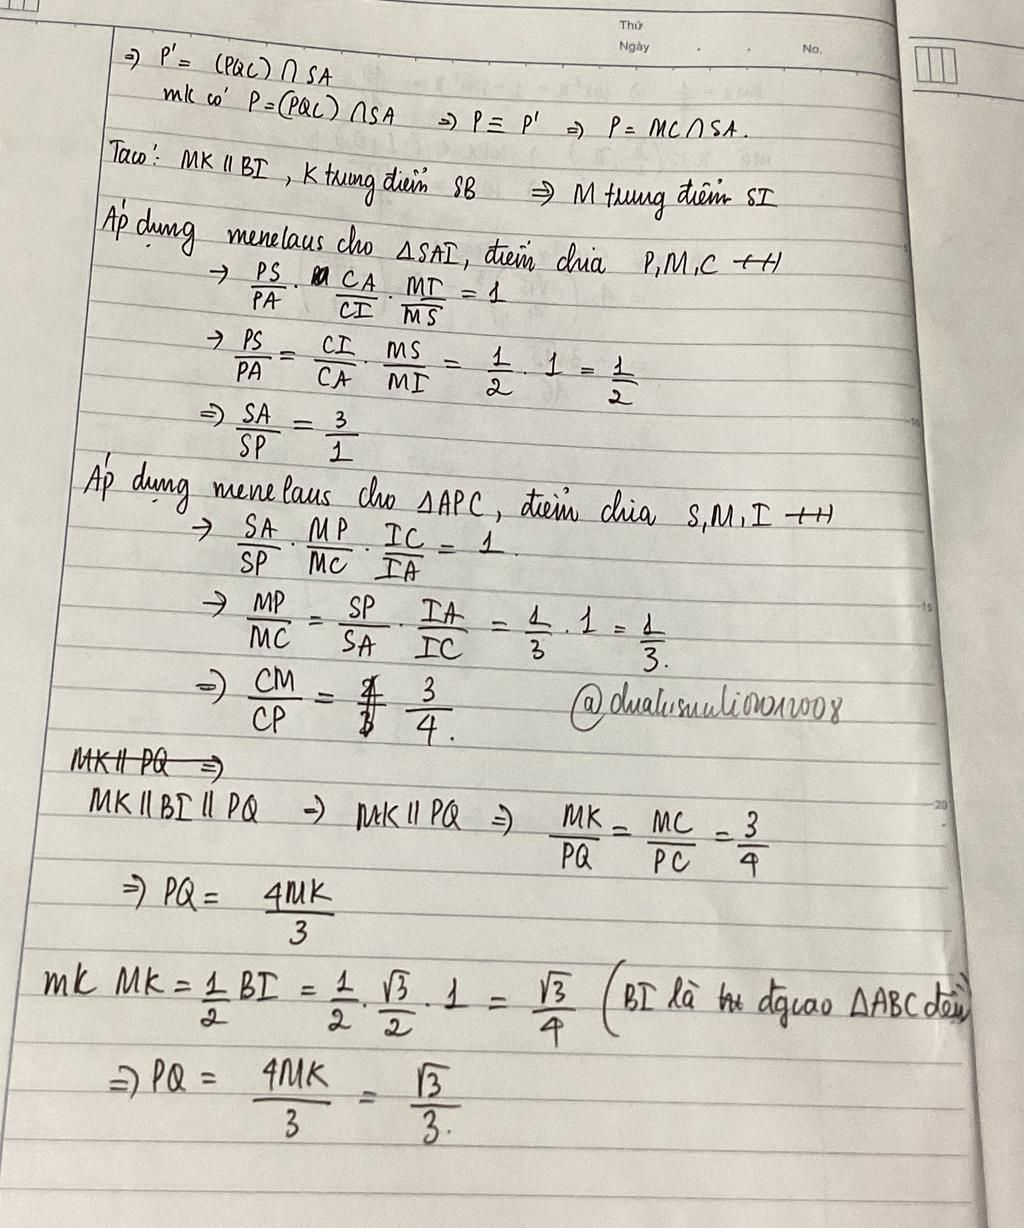 Thứ
Ngày . . No.
⇒ P' = (PQC) ∩ SA
mk có P = (PQC) ∩ SA ⇒ P ≡ P' ⇒ P = MC ∩ SA.
Ta có: MK // BI, K trung điểm SB ⇒ M trung điểm SI
Áp dụng menelaus cho ΔSAI, điểm chia P, M, C
→ PS/PA . CA/CI . MI/MS = 1
→ PS/PA = CI/CA . MS/MI = 1/2 . 1 = 1/2
⇒ SA/SP = 3/1
Áp dụng menelaus cho ΔAPC, điểm chia S, M, I
→ SA/SP . MP/MC . IC/IA = 1.
→ MP/MC = SP/SA . IA/IC = 1/3 . 1 = 1/3.
⇒ CM/CP = 3/4.
MK // PQ ⇒
MK // BI // PQ → MK // PQ ⇒ MK/PQ = MC/PC = 3/4
⇒ PQ = 4MK/3
mk MK = 1/2 BI = 1/2 . √3/2 . 1 = √3/4 (BI là đgcao ΔABC đều)
⇒ PQ = 4MK/3 = √3/3.
10
15
20